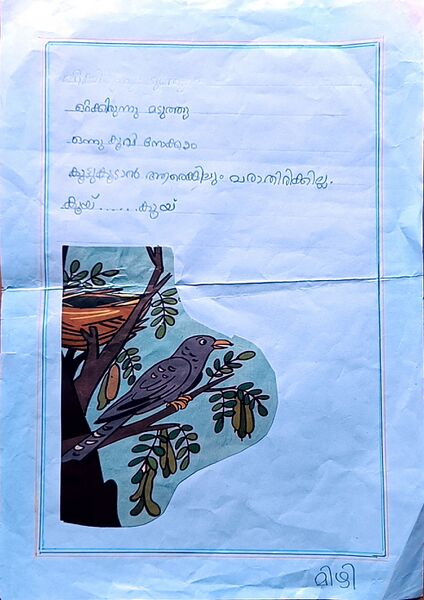 ഒറ്റക്കിരുന്നു മടുത്തു
ഒന്നു കൂവി നോക്കാം
കൂട്ടുകൂടാൻ ആരെങ്കിലും വരാതിരിക്കില്ല.
കൂയ്......കൂയ്
മിഴി